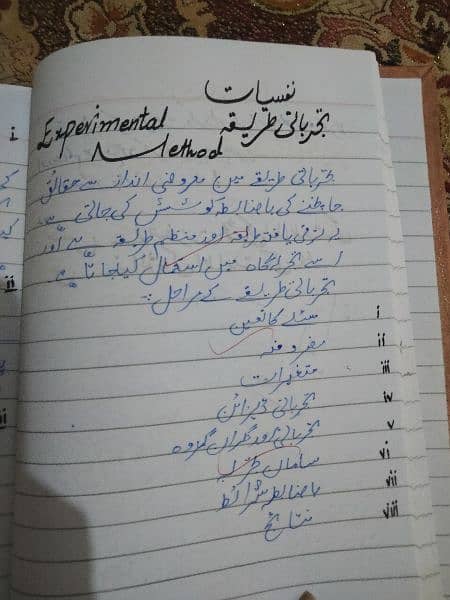 نفسیات
تجرباتی طریقہ
Experimental
Method
تجرباتی طریقے میں معروضی انداز سے حقائق
جاننے کی باضابطہ کوشش کی جاتی ہے
یہ ترقی یافتہ طریقہ اور منظم طریقہ ہے اور
اسے تجربہ گاہ میں استعمال کیا جاتا ہے
تجرباتی طریقے کے مراحل :-
i مسئلے کا تعین
ii مفروضہ
iii متغیرات
iv تجرباتی ڈیزائن
v تجرباتی اور نگران گروہ
vi سامان
vii باضابطہ شرائط
viii نتائج